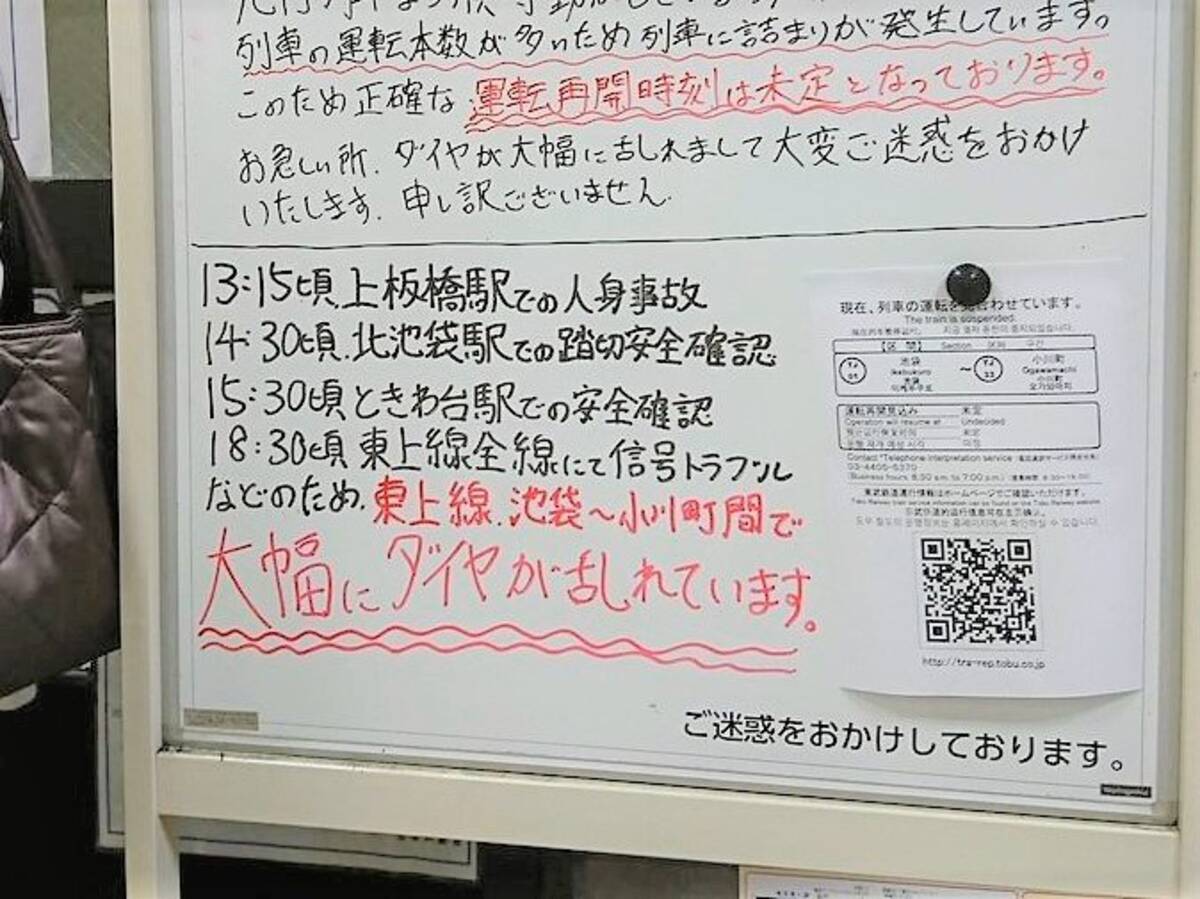 列車の運転本数が多いため列車に詰まりが発生しています。
このため正確な運転再開時刻は未定となっております。
お急しい所、ダイヤが大幅に乱れまして大変ご迷惑をおかけ
いたします。申し訳ございません。
13:15頃、上板橋駅での人身事故
14:30頃、北池袋駅での踏切安全確認
15:30頃ときわ台駅での安全確認
18:30頃 東上線全線にて信号トラブル
などのため、東上線、池袋〜小川町間で
大幅にダイヤが乱れています。
現在、列車の運転を見合わせています。
The train is suspended.
【区間】 Section 区间 구간
池袋 Ikebukuro 池袋 이케부쿠로
〜
小川町 Ogawamachi 小川町 오가와마치
運転再開見込み 未定
Operation will resume at Undecided
Contact "Telephone interpretation service
03-4405-5370
(Business hours: 8:50 a.m. to 7:00 p.m.)
東武鉄道運行情報はホームページでご確認いただけます。
http://tra-rep.tobu.co.jp
ご迷惑をおかけしております。